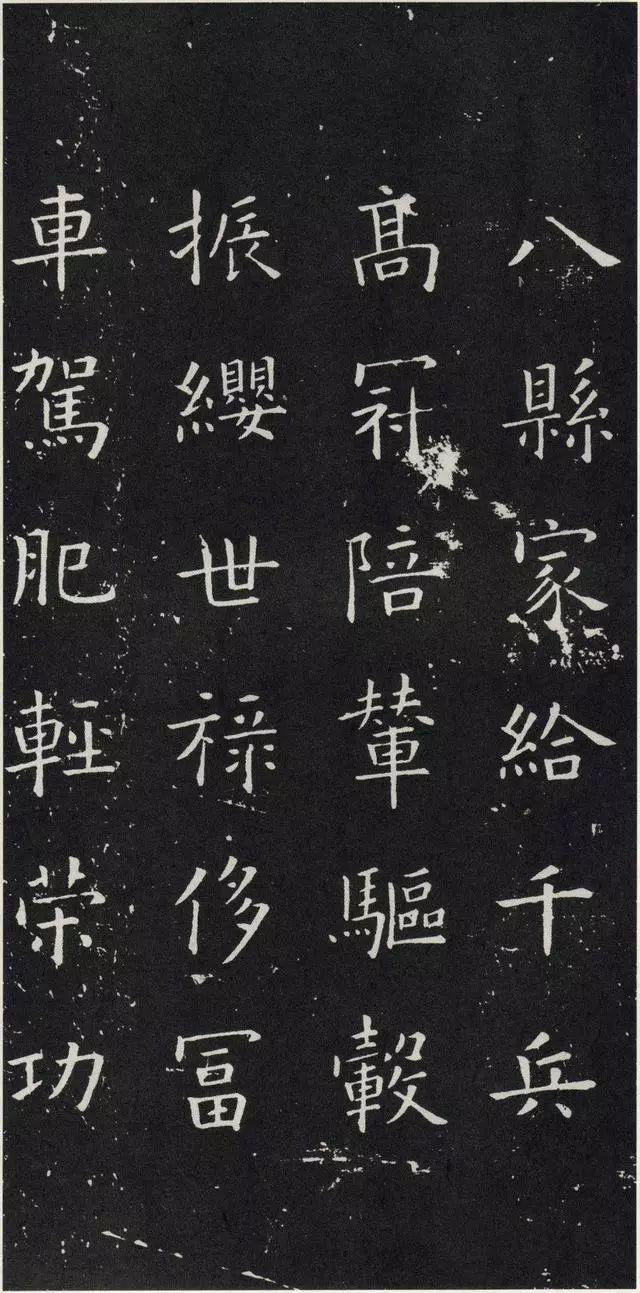 八縣家給千兵
高冠陪輦驅轂
振纓世祿侈富
車駕肥輕荣功